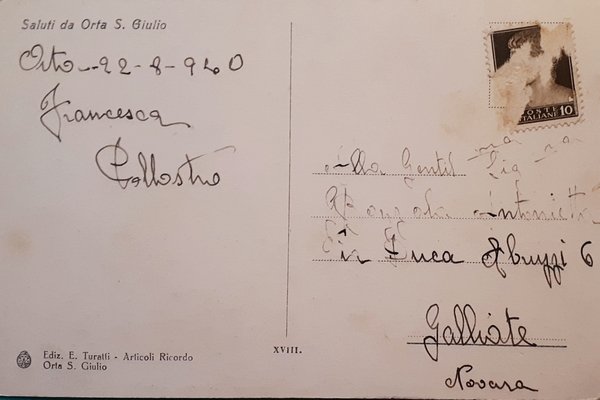 Saluti da Orta S. Giulio
Orta - 22-8-940
Francesca
POSTE
ITALIANE 10
Alla Gentil ma Sig na
Antonietta
Via Duca Abruzzi 6
Galliate
Novara
Ediz. E. Turatti - Articoli Ricordo
Orta S. Giulio
XVIII.